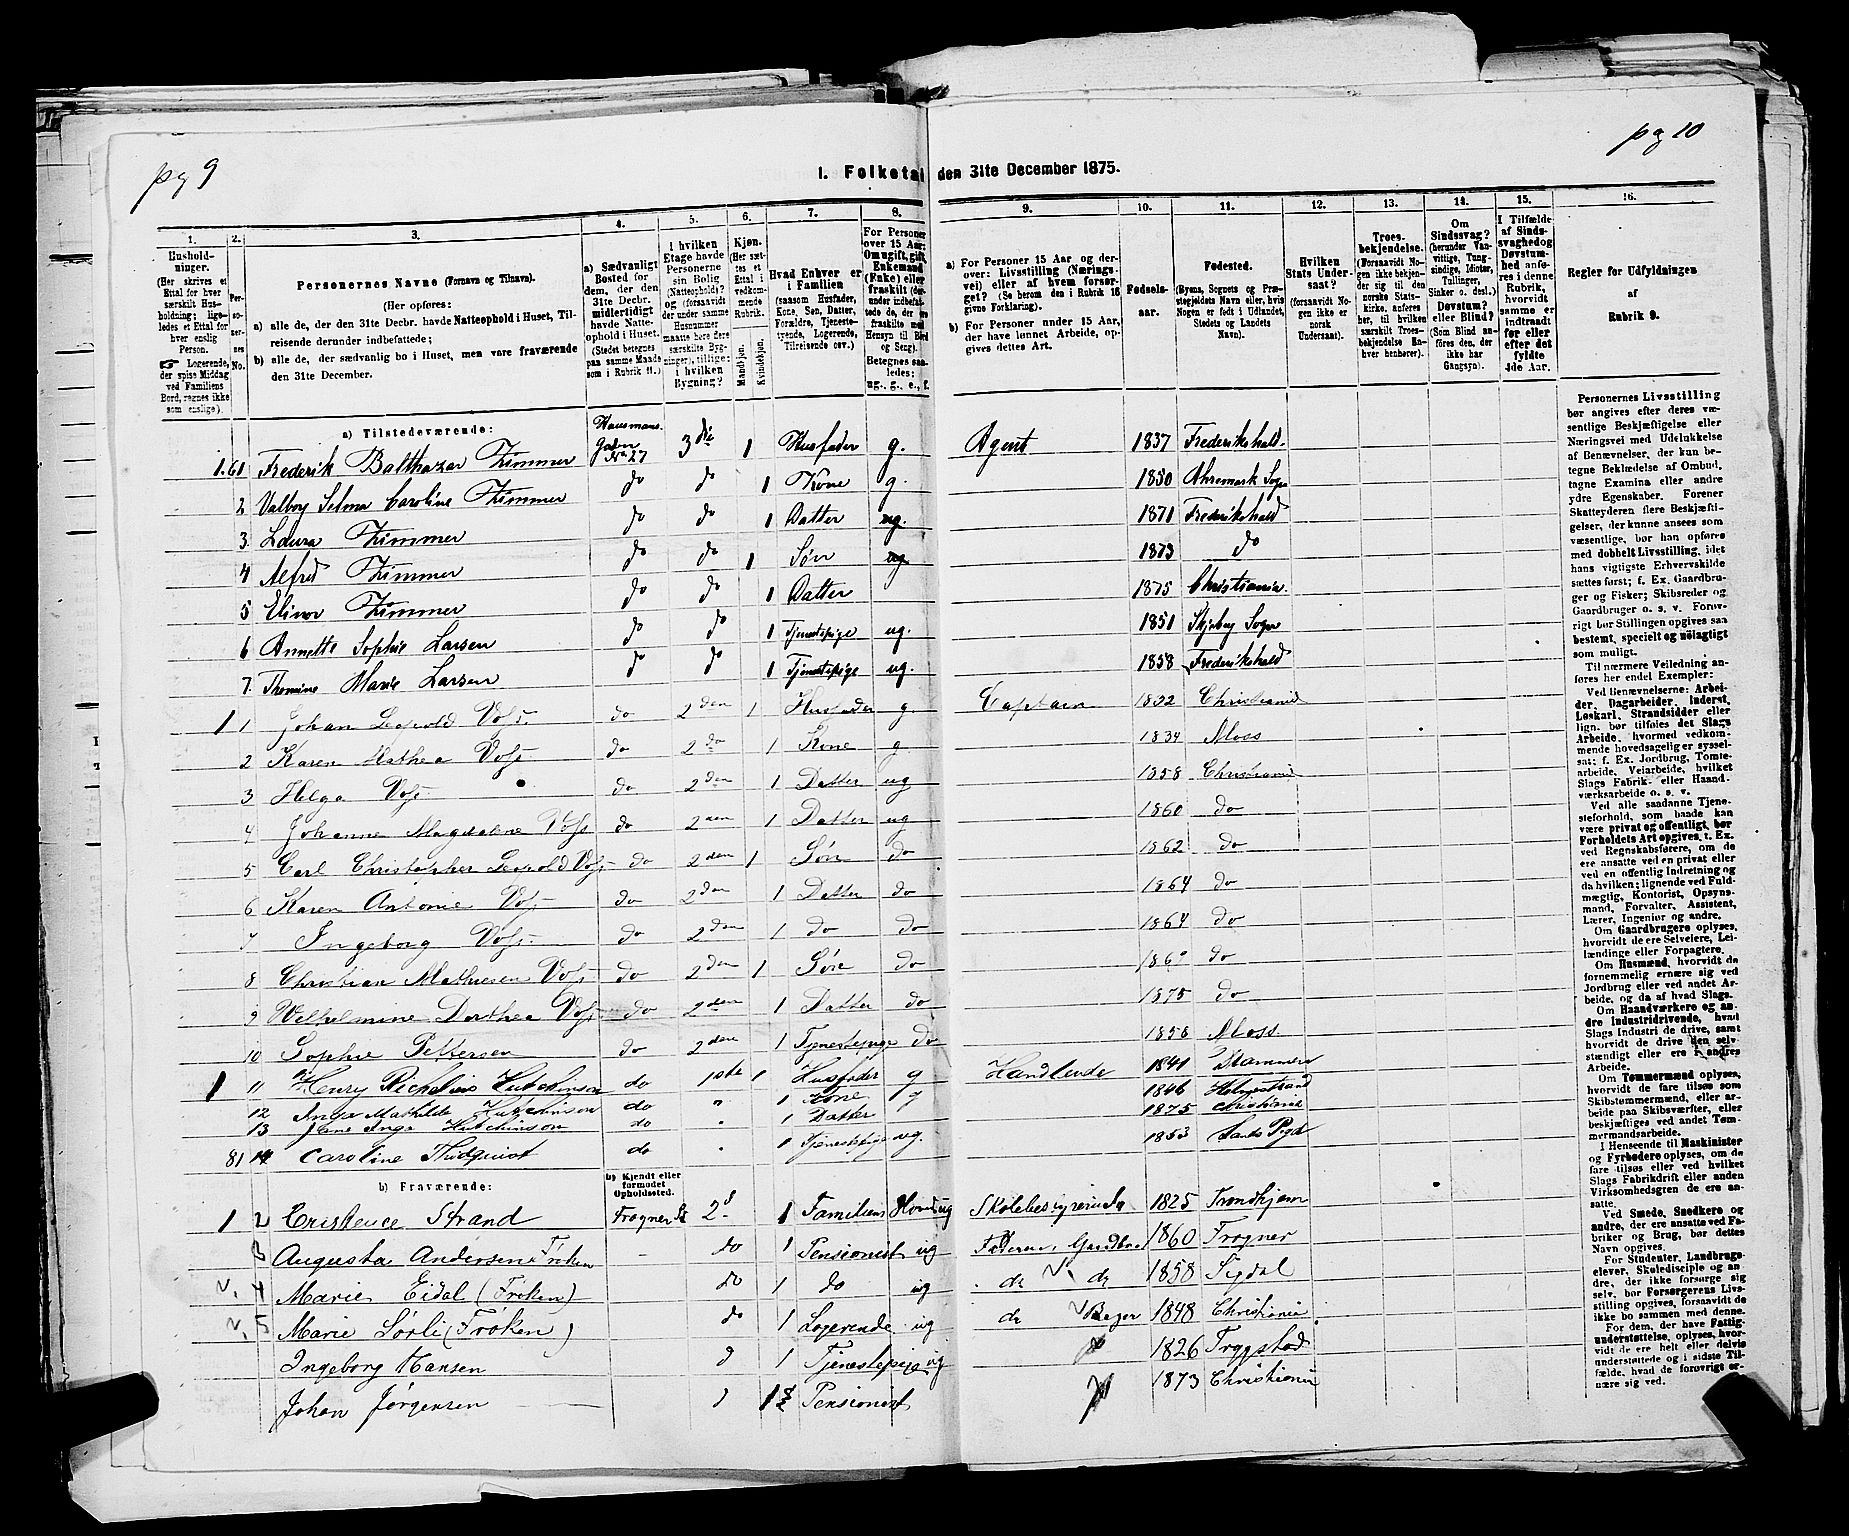 pg 9
pg 10
1. Folketal den 31te December 1875.
1.
2.
3.
4.
5.
6.
7.
8.
9.
10.
11.
12.
13.
14.
15.
16.
Husholdninger. (Her skrives et Ettal for hver særskilt Husholdning; ligeledes et Ettal for hver enslig Person. ☞ Logerende, der spise Middag ved Familiens Bord, regnes ikke som enslige).
Personernes No.
Personernes Navne (Fornavn og Tilnavn).
(Her opføres:
a) alle de, der den 31te Decbr. havde Natteophold i Huset, Tilreisende derunder indbefattede;
b) alle de, der sædvanlig bo i Huset, men vare fraværende den 31te December.
a) Sædvanligt Bosted for dem, der den 31te Decbr. midlertidigt havde Natteophold i Huset. (Stedet betegnes paa samme Maade som i Rubrik 11.)
I hvilken Etage havde Personerne sin Bolig (Natteophold)? og (forsaavidt der under samme Husnummer maatte høre flere særskilte Bygninger), tillige: i hvilken Bygning?
Kjøn. (Her sættes et Ettal i vedkommende Rubrik.
Mandkjøn.
Kvindekjøn.
Hvad Enhver er i Familien (saasom Husfader, Kone, Søn, Datter, Forældre, Tjenestetyende, Logerende, Tilreisende osv.)
For Personer over 15 Aar: Om ugift, gift, Enkemand (Enke) eller fraskilt (derunder indbefattede de, der ere fraskilte med Hensyn til Bord og Seng). Betegnes saaledes: ug., g., e., f.
a) For Personer 15 Aar og derover: Livsstilling (Næringsvei) eller af hvem forsørget? (Se borem den i Rubrik 16 givne Forklaring).
b) For Personer under 15 Aar, der have lønnet Arbeide, opgives dettes Art.
Fødselsaar.
Fødested. (Byens, Sognets og Præstegjeldets Navn eller, hvis Nogen er født i Udlandet, Stedets og Landets Navn).
Hvilken Stats Undersaat? (forsaavidt Nogen ikke er norsk Undersaat).
Troesbekjendelse. (Forsaavidt Nogen ikke bekjender sig til den norske Statskirke, anføres her, til hvilken særskilt Troesbekjendelse Enhver henhører).
Om Sindssvag? (herunder Vanvittige, Tungsindige, Idioter, Tullinger, Sinker o. desl.) Døvstum? eller Blind? (Som Blind anføres den, der ikke har Gangsyn).
I Tilfælde af Sindssvaghed og Døvstumhed anføres i denne Rubrik, hvorvidt samme er indtraadt før eller efter det fyldte 4de Aar.
Regler for Udfyldningen af Rubrik 9.
a) Tilstedeværende:
1. 61 Frederik Balthazar Zimmer Hausmans Gaden No 27 3die 1 Husfader g. Agent 1837 Frederikshald.
2 Valborg Selma Caroline Zimmer do do 1 Kone g. 1850 Ahremark Sogn
3. Laura Zimmer do do 1 Datter ug. 1871 Frederikshald
4 Alfred Zimmer do do 1 Søn ug 1873 do
5 Elinor Zimmer do do 1 Datter 1875 Christiania.
6 Annette Sophie Larsen do do 1 Tjenestepige ug. 1851 Skjeberg Sogn
7. Thomine Marie Larsen do do 1 Tjenestepige ug. 1858 Frederikshald
1 1 Johan Leopold Voss do 2den 1 Husfader g. Captain 1832 Christiania
2 Karen Mathea Voss do 2do 1 Kone g 1834 Moss
3 Helga Voss do 2den 1 Datter ug 1858 Christiania
4 Johanne Magdalene Voss do 2den 1 Datter ug 1860 do
5 Carl Christopher Leopold Voss do 2den 1 Søn do 1862 do
6 Karen Antonie Voss do 2den 1 Datter do 1864 do
7 Ingeborg Voss do 2den 1 do do 1864 do
8 Christian Mathiesen Voss do 2den 1 Søn do do
9 Wilhelmine Dorthea Voss do 2den 1 Datter do 1875 do
10 Sophie Pettersen do 2den 1 Tjenestepige do 1858 Moss
1 11 Henry Richelius Hutchinson do 1ste 1 Husfader g Handlende 1841 Stammen
12 Inga Mathilde Hutchinson do " 1 Kone g 1846 Holmestrand
13 Jane Inga Hutchinson do " 1 Datter 1875 Christiania
81 14 Caroline Thidquist do " 1 Tjenestepige ug. 1853
b) Fraværende:
b) Kjendt eller formodet Opholdssted.
1 2 Cristence Strand Frogner 2d 1 Familiens Hoved ug Skolebestyrerinde 1825 Trondhjem
3 Augusta Andersen Frøken - do 1 Pensionist ug 1860 Frogner
v. 4 Marie Eidal (Frøken) do 1 do ug do v. do 1858 Sigdal
v. 5 Marie Sørli (Frøken) do 1 Logerende ug do v Bager 1848 Christiania
Ingeborg Hansen d 1 Tjenestepige ug 1826 Trygstad
Johan Jørgensen d 1 Pensionist 1873 Christiania
Personernes Livsstilling bør angives efter deres væsentlige Beskjæftigelse eller Næringsvei med Udelukkelse af Benævnelser, der kun betegne Beklædelse af Ombud, tagne Examina eller andre ydre Egenskaber. Forener Skatteyderen flere Beskjæftigelser, der kunne ansees som væsentlige, bør han opføres med dobbelt Livsstilling, idet hans vigtigste Erhvervskilde sættes først; f. Ex. Gaardbruger og Fisker; Skibsreder og Gaardbruger o. s. v. Forøvrigt bør Stillingen opgives saa bestemt, specielt og nøiagtigt som muligt.
Til nærmere Veiledning anføres her endel Exempler:
Ved Benævnelserne: Arbeider, Dagarbeider, Inderst, Løskarl, Strandsidder eller lign. bør tilføies det Slags Arbeide, hvormed vedkommende hovedsagelig er sysselsat; f. Ex. Jordbrug, Tomtearbeide, Veiarbeide, hvilket Slags Fabrik- eller Haandværksarbeide o. s. v.
Ved alle saadanne Tjenesteforhold, som baade kan være privat og offentligt, bør Forholdets Art opgives, f. Ex. ved Regnskabsførere, om de ere ansatte ved en privat eller ved en offentlig Indretning og da hvilken; lignende ved Fuldmægtig, Kontorist, Opsynsmand, Forvalter, Assistent, Lærer, Ingeniør og andre.
Om Gaardbrugere oplyses, hvorvidt de ere Selveiere, Leilændinge eller Forpagtere.
Om Husmænd, hvorvidt de fornemmelig ernære sig ved Jordbrug eller ved andet Arbeide, og da af hvad Slags.
Om Haandværkere og andre Industridrivende, hvad Slags Industri de drive, samt hvorvidt de drive den selvstændigt eller ere i andres Arbeide.
Om Tømmermænd oplyses, hvorvidt de fare tilsøs som Skibstømmermænd, eller arbeide paa Skibsværfter, eller beskjæftiges ved andet Tømmermandsarbeide.
I Henseende til Maskinister og Fyrbødere oplyses, om de fare tilsøs eller ved hvilket Slags Fabrikdrift eller anden Virksomhedsgren de ere ansatte.
Ved Smede, Snedkere og andre, der ere ansatte ved Fabriker og Brug, bør dettes Navn opgives.
For Studenter, Landbrugselever, Skoledisciple og andre, der ikke forsørge sig selv, bør Forsørgerens Livsstilling opgives, forsaavidt de ikke bo sammen med denne.
For dem, der have Fattigunderstøttelse, oplyses, hvorvidt de ere helt eller delvis understøttede og i sidste Tilfælde, hvad de forøvrigt ernære sig ved.